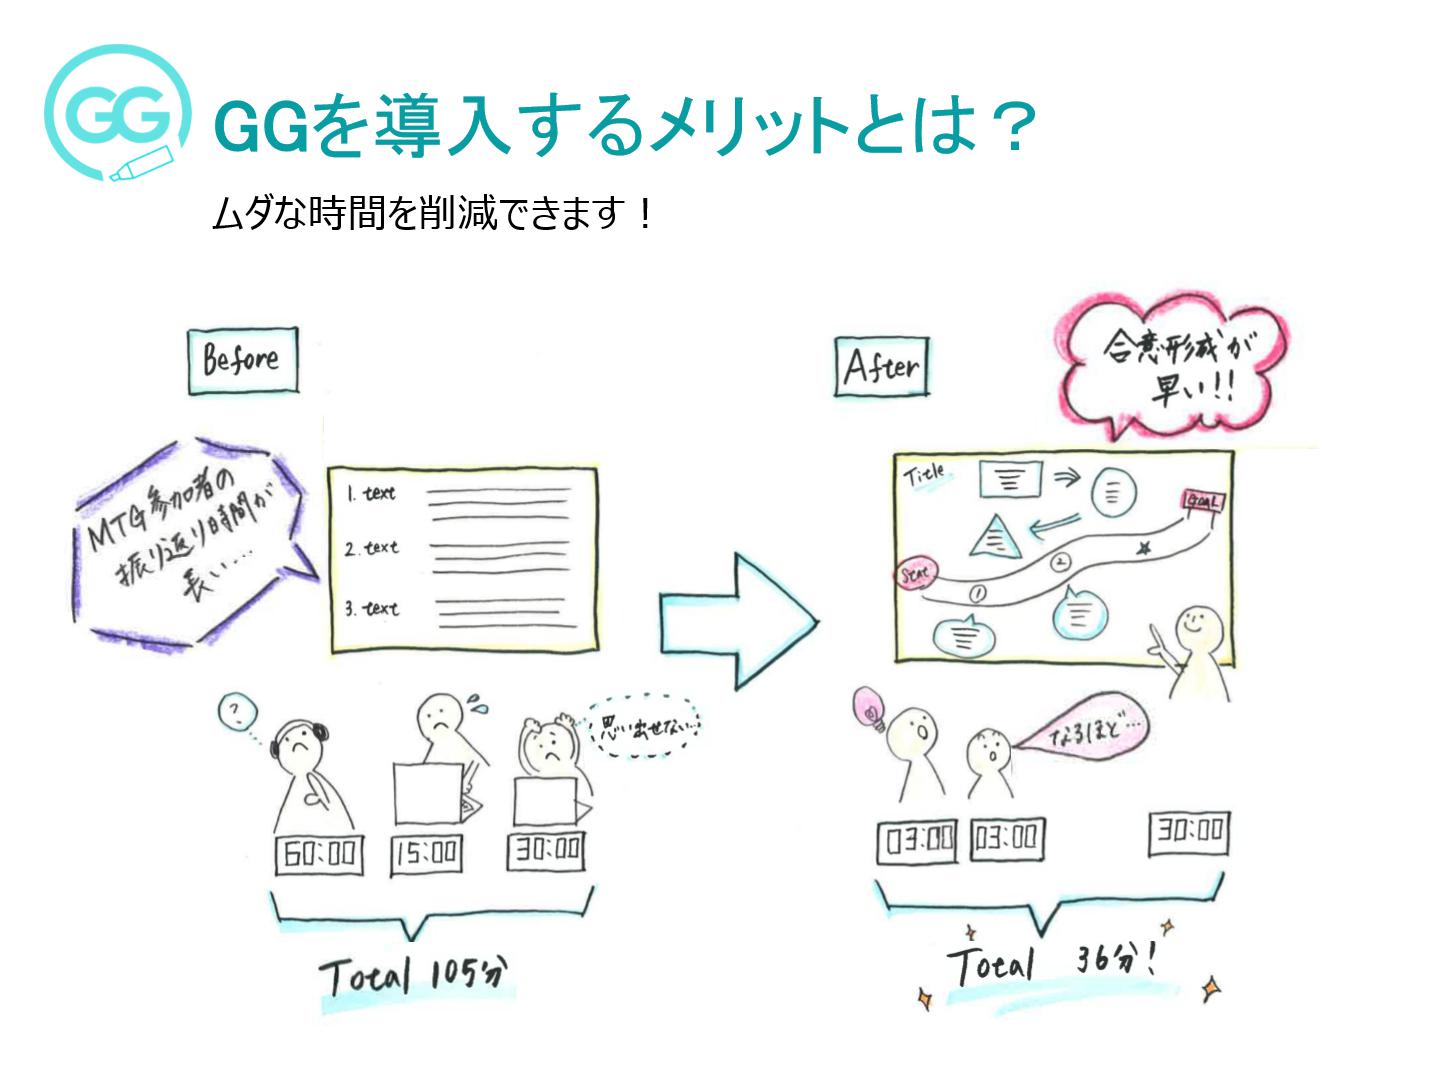 GG
GGを導入するメリットとは？
ムダな時間を削減できます！
Before
MTG参加者の
振り返り時間が
長い…
1. text
2. text
3. text
?
思い出せない…
60:00
15:00
30:00
Total 105分
After
合意形成が
早い!!
Title
GOAL
Start
1
2
なるほど…
03:00
03:00
30:00
Total 36分!